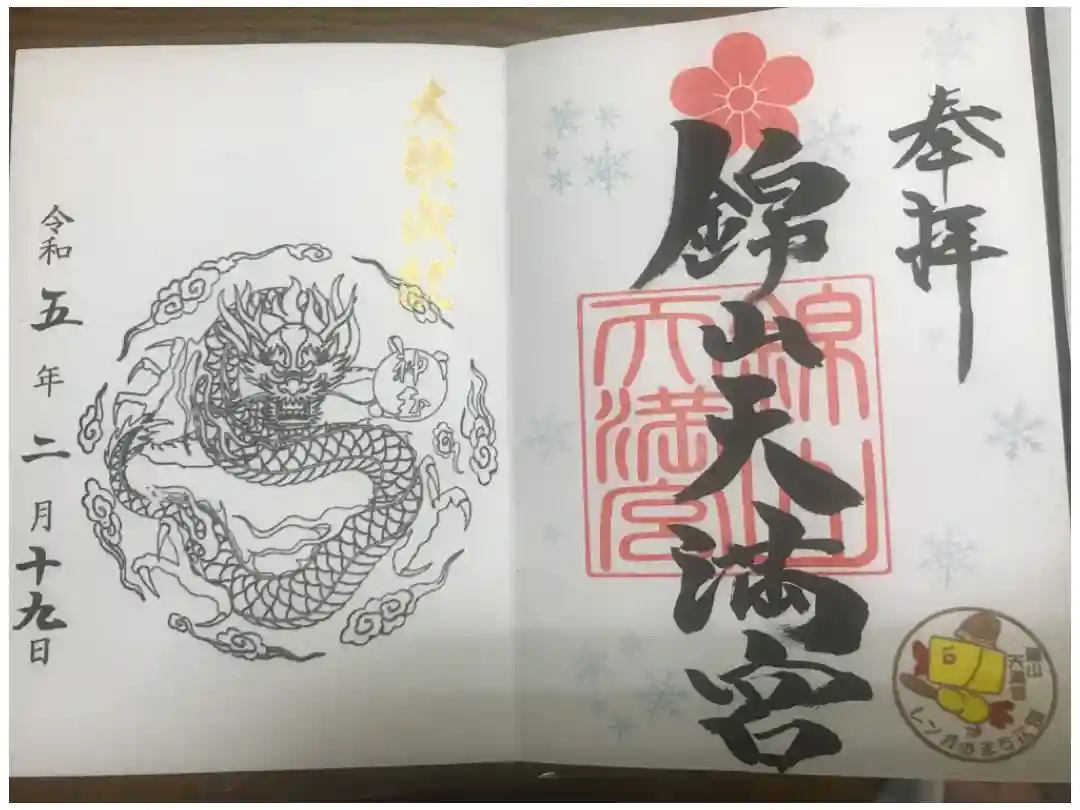 奉拝
錦山天満宮
錦山
天満宮
錦山
天満宮
レンガのまち江別
神玉
令和五年二月十九日